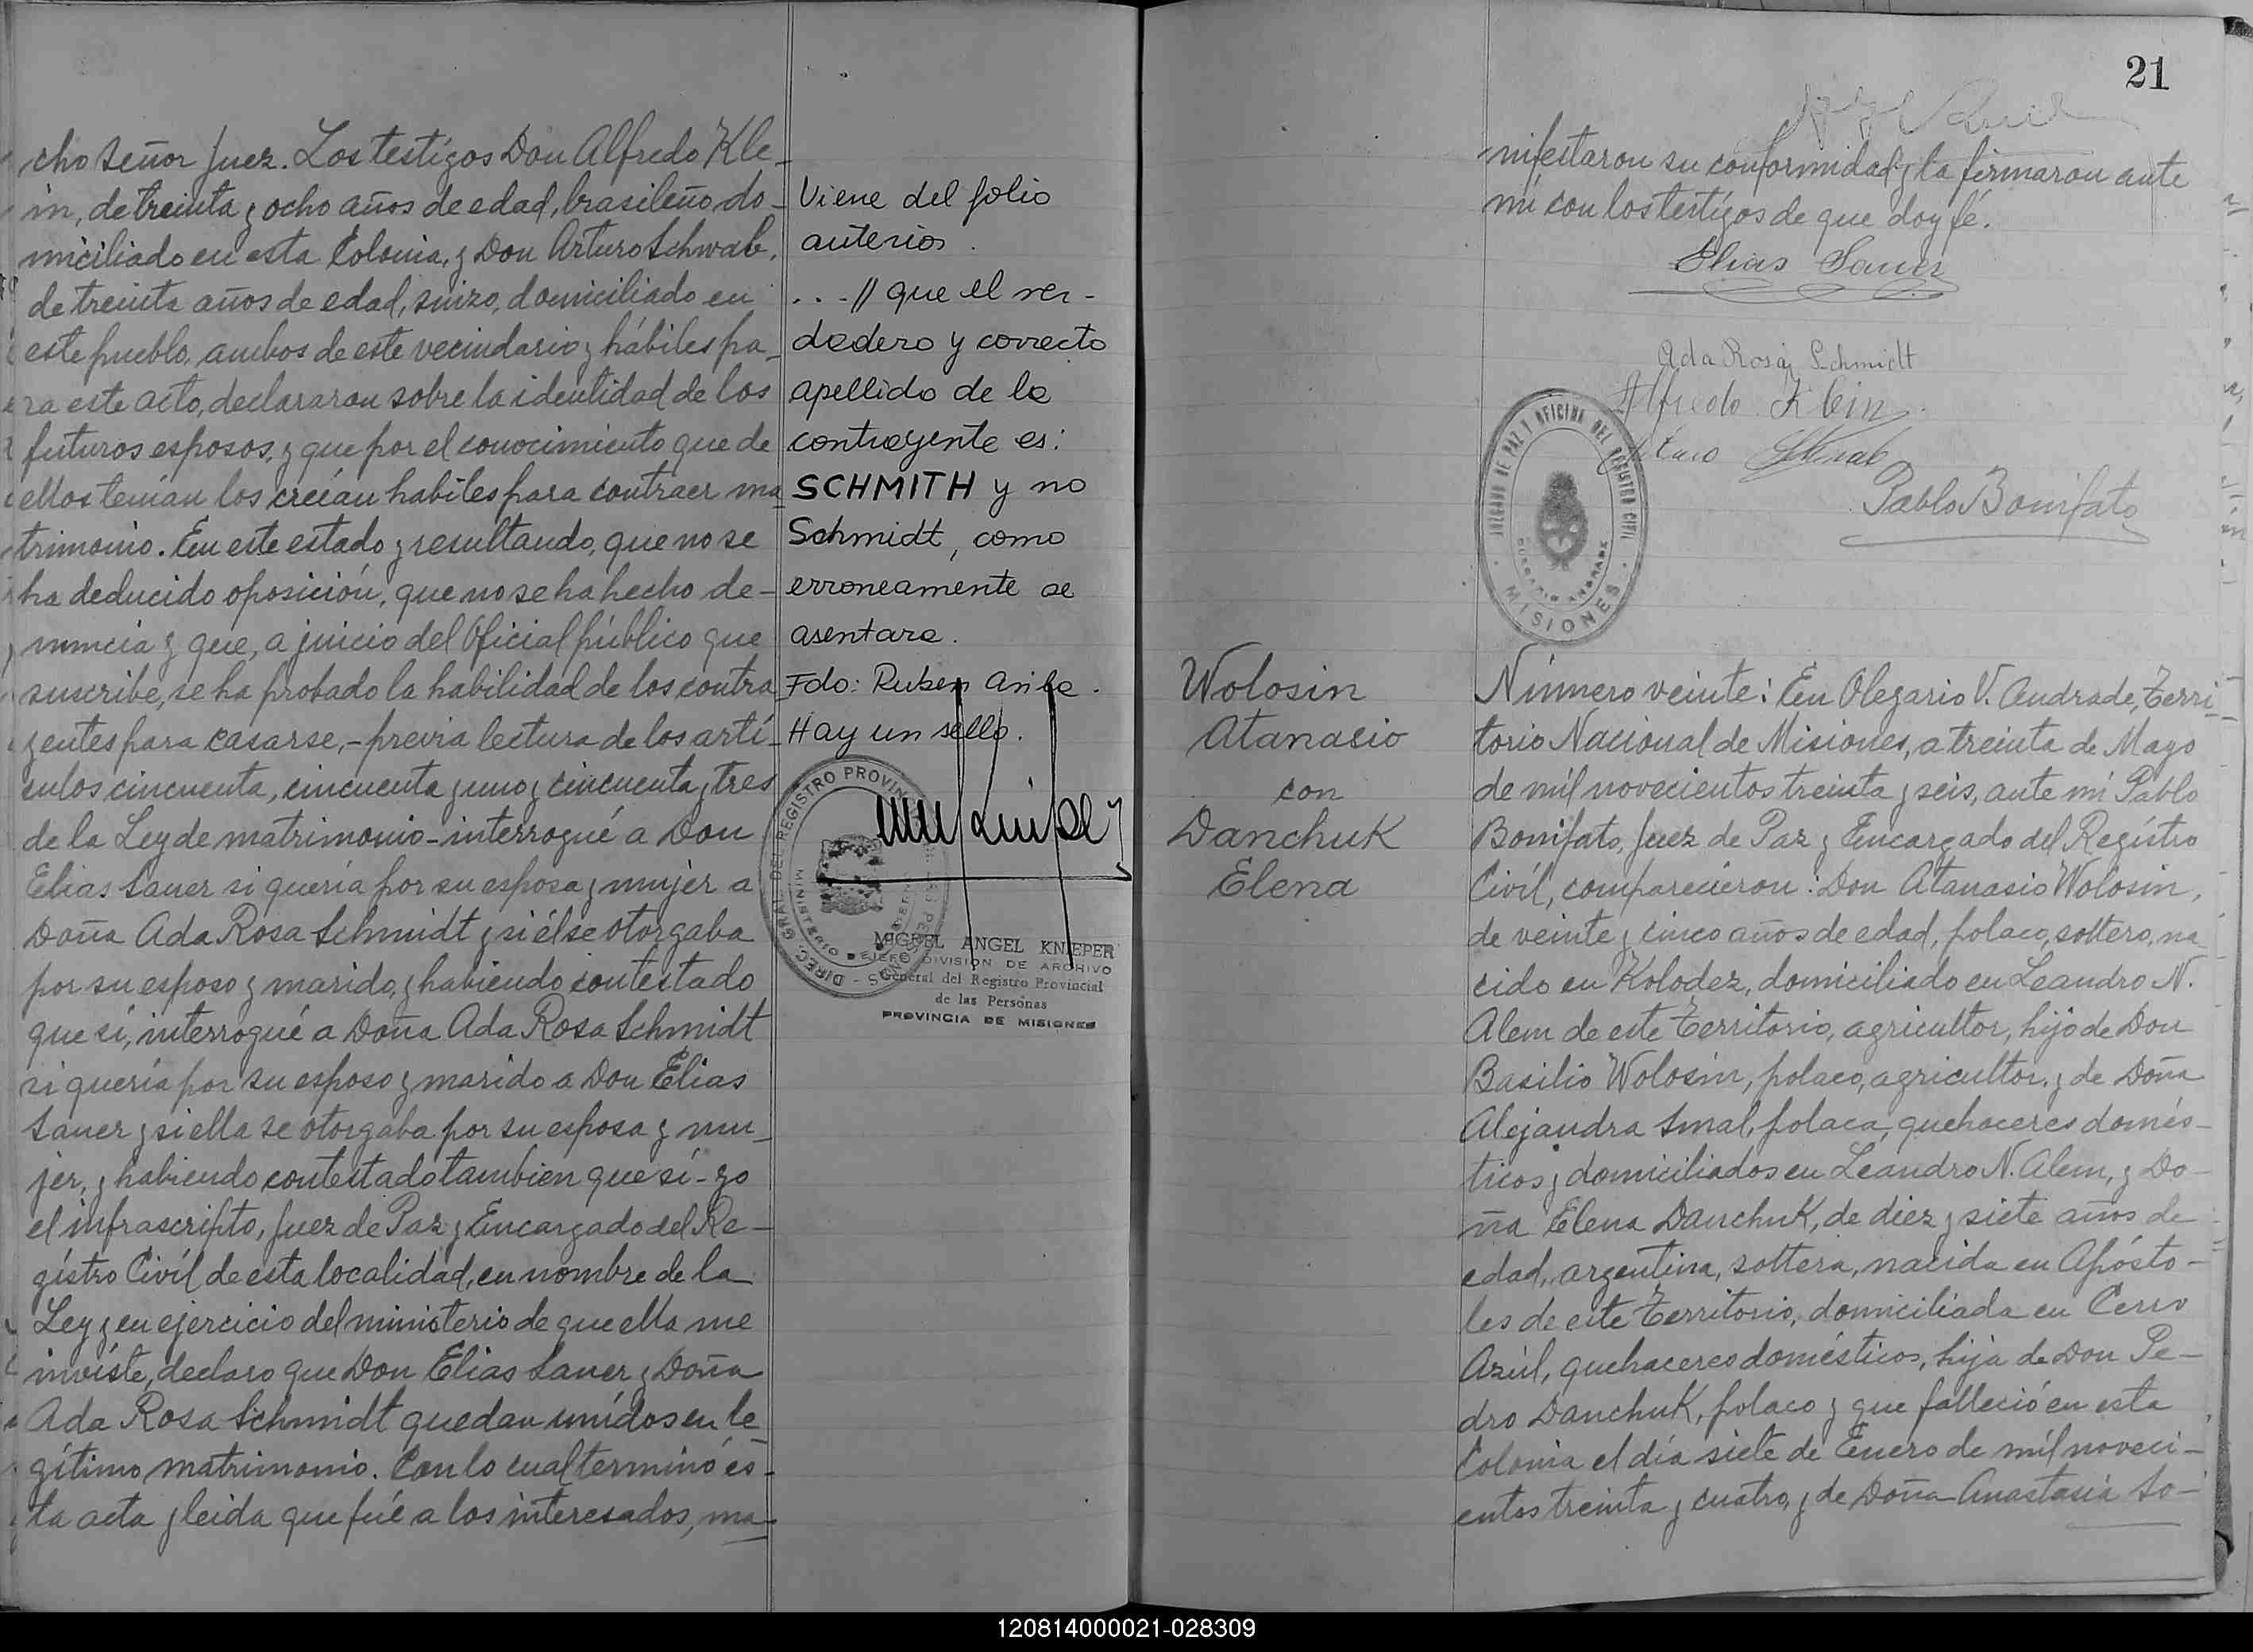 cho señor Juez. Los testigos Don Alfredo Kle-
in, de treinta y ocho años de edad, brasileño do-
miciliado en esta Colonia, y Don Arturo Schwab,
de treinta años de edad, suizo, domiciliado en
este pueblo, ambos de este vecindario y hábiles pa-
ra este acto, declararon sobre la identidad de los
futuros esposos, y que por el conocimiento que de
ellos tenían los creían habiles para contraer ma-
trimonio. En este estado y resultando, que no se
ha deducido oposición, que no se ha hecho de-
nuncia y que, a juicio del Oficial público que
suscribe, se ha probado la habilidad de los contra
yentes para casarse, - previa lectura de los artí-
culos cincuenta, cincuenta y uno y cincuenta y tres
de la Ley de matrimonio - interrogué a Don
Elias Sauer si quería por su esposa y mujer a
Doña Ada Rosa Schmidt y si él se otorgaba
por su esposo y marido, y habiendo contestado
que sí, interrogué a Doña Ada Rosa Schmidt
si quería por su esposo y marido a Don Elias
Sauer y si ella se otorgaba por su esposa y mu-
jer, y habiendo contestado tambien que sí - yo
el infrascripto, Juez de Paz y Encargado del Re-
gístro Civíl de esta localidad, en nombre de la
Ley y en ejercicio del ministerio de que ella me
inviste, declaro que Don Elias Sauer y Doña
Ada Rosa Schmidt quedan unídos en le-
gítimo matrimonio. Con lo cual terminó és-
ta acta y leida que fué a los interesados, ma-
Viene del folio
anterior.
...// que el ver-
dadero y correcto
apellido de la
contrayente es:
SCHMITH y no
Schmidt, como
erroneamente se
asentara.
Fdo: Ruben
Hay un sello.
DIREC. GRAL. DE REGISTRO PROVIN
MINISTERIO
MIGUEL ANGEL KNIEPER
JEFE DIVISION DE ARCHIVO
General del Registro Provincial
de las Personas
PROVINCIA DE MISIONES
21
nifestaron su conformidad y la firmaron ante
mí con los testigos de que doy fé.
Elias Sauer
Ada Rosa Schmidt
Alfredo Klein
Arturo Schwab
Pablo Bonifato
JUZGADO DE PAZ Y OFICINA DEL REGISTRO CIVIL
OLEGARIO ANDRADE
MISIONES
Wolosin
Atanacio
con
Danchuk
Elena
Número veinte: En Olegario V. Andrade, Terri-
torio Nacional de Misiones, a treinta de Mayo
de míl novecientos treinta y seis, ante mí Pablo
Bonifato, Juez de Paz y Encargado del Regístro
Civíl, comparecieron: Don Atanasio Wolosin,
de veinte y cinco años de edad, polaco, soltero, na-
cido en Kolodez, domiciliado en Leandro N.
Alem de este Territorio, agricultor, hijo de Don
Basilio Wolosin, polaco, agricultor, y de Doña
Alejandra Smal, polaca, quehaceres domés-
ticos y domiciliados en Leandro N. Alem, y Do-
ña Elena Danchuk, de diez y siete años de
edad, argentina, soltera, nacida en Apósto-
les de este Territorio, domiciliada en Cerro
Azúl, quehaceres domésticos, hija de Don Pe-
dro Danchuk, polaco y que falleció en esta
Colonia el día siete de Enero de míl noveci-
entos treinta y cuatro, y de Doña Anastasia So-
120814000021-028309